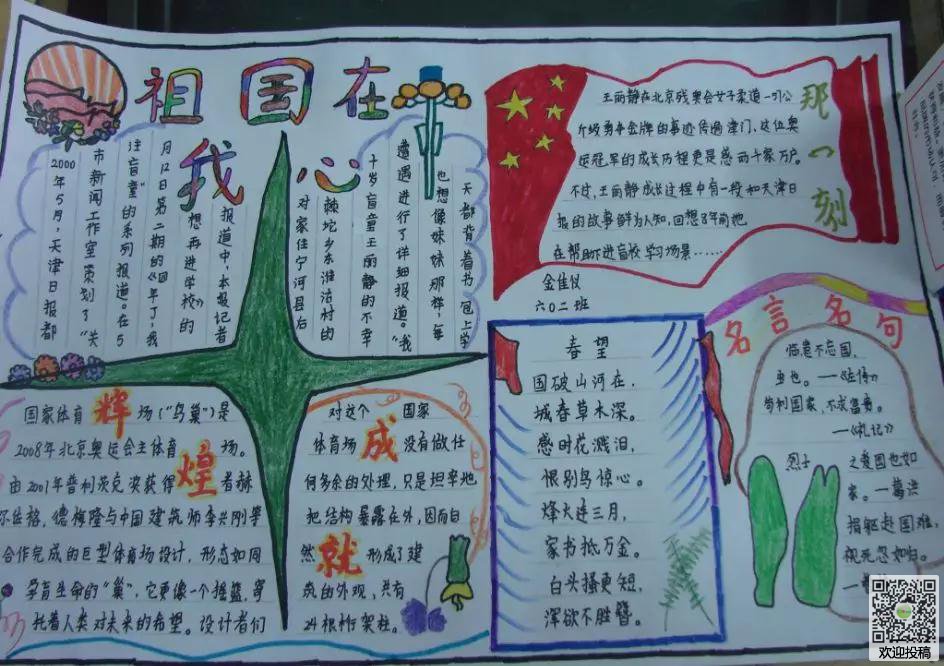 祖国在
我心
2000年5月,天津日报都
市新闻工作室策划了“关
注盲童”的系列报道。在5
月12日第二期的《四年了,我
想再进学校》的
报道中,本报记者
对家住宁河县后
棘坨乡东淮沽村的
十岁盲童王丽静的不幸
遭遇进行了详细报道。“我
也想像妹妹那样,每
天都背着书包上学
那一刻
王丽静在北京残奥会女子柔道一引公
斤级勇夺金牌的事迹传遍津门,这位奥
运冠军的成长历程更是感动千家万户。
不过,王丽静成长过程中有一段和天津日
报的故事鲜为人知,回想8年前他
在帮助下进盲校学习场景……
金佳仪
六〇二班
国家体育场(“鸟巢”)是
2008年北京奥运会主体育场。
由2001年普利茨克奖获得者赫
尔佐格,德梅隆与中国建筑师李兴刚等
合作完成的巨型体育场设计,形态如同
孕育生命的“巢”,它更像一个摇篮,寄
托着人类对未来的希望。设计者们
辉煌
成就
对这个国家
体育场没有做任
何多余的处理,只是坦率地
把结构暴露在外,因而自
然形成了建
筑的外观,共有
24根桁架柱。
春望
国破山河在,
城春草木深。
感时花溅泪,
恨别鸟惊心。
烽火连三月,
家书抵万金。
白头搔更短,
浑欲不胜簪。
名言名句
临患不忘国,
忠也。——《左传》
苟利国家,不求富贵。
——《礼记》
烈士之爱国也如
家。——葛洪
捐躯赴国难,
视死忽如归。
欢迎投稿